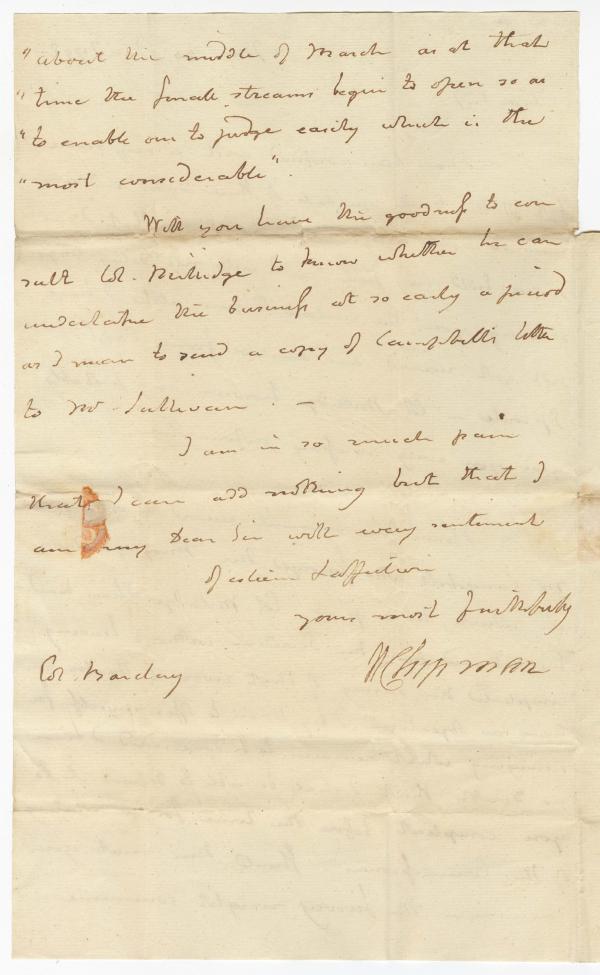 "about the middle of March as at that
"time the small streams begin to open so as
"to enable one to judge easily which is the
"most considerable".
Will you have the goodness to con
sult Col. Millidge to know whether he can
undertake the business at so early a period
as I mean to send a copy of Campbell's letter
to Mr. Sullivan. —
I am in so much pain
that I can add nothing but that I
am my Dear Sir with every sentiment
of esteem & affection
yours most faithfully
W Chipman
Col. Barclay